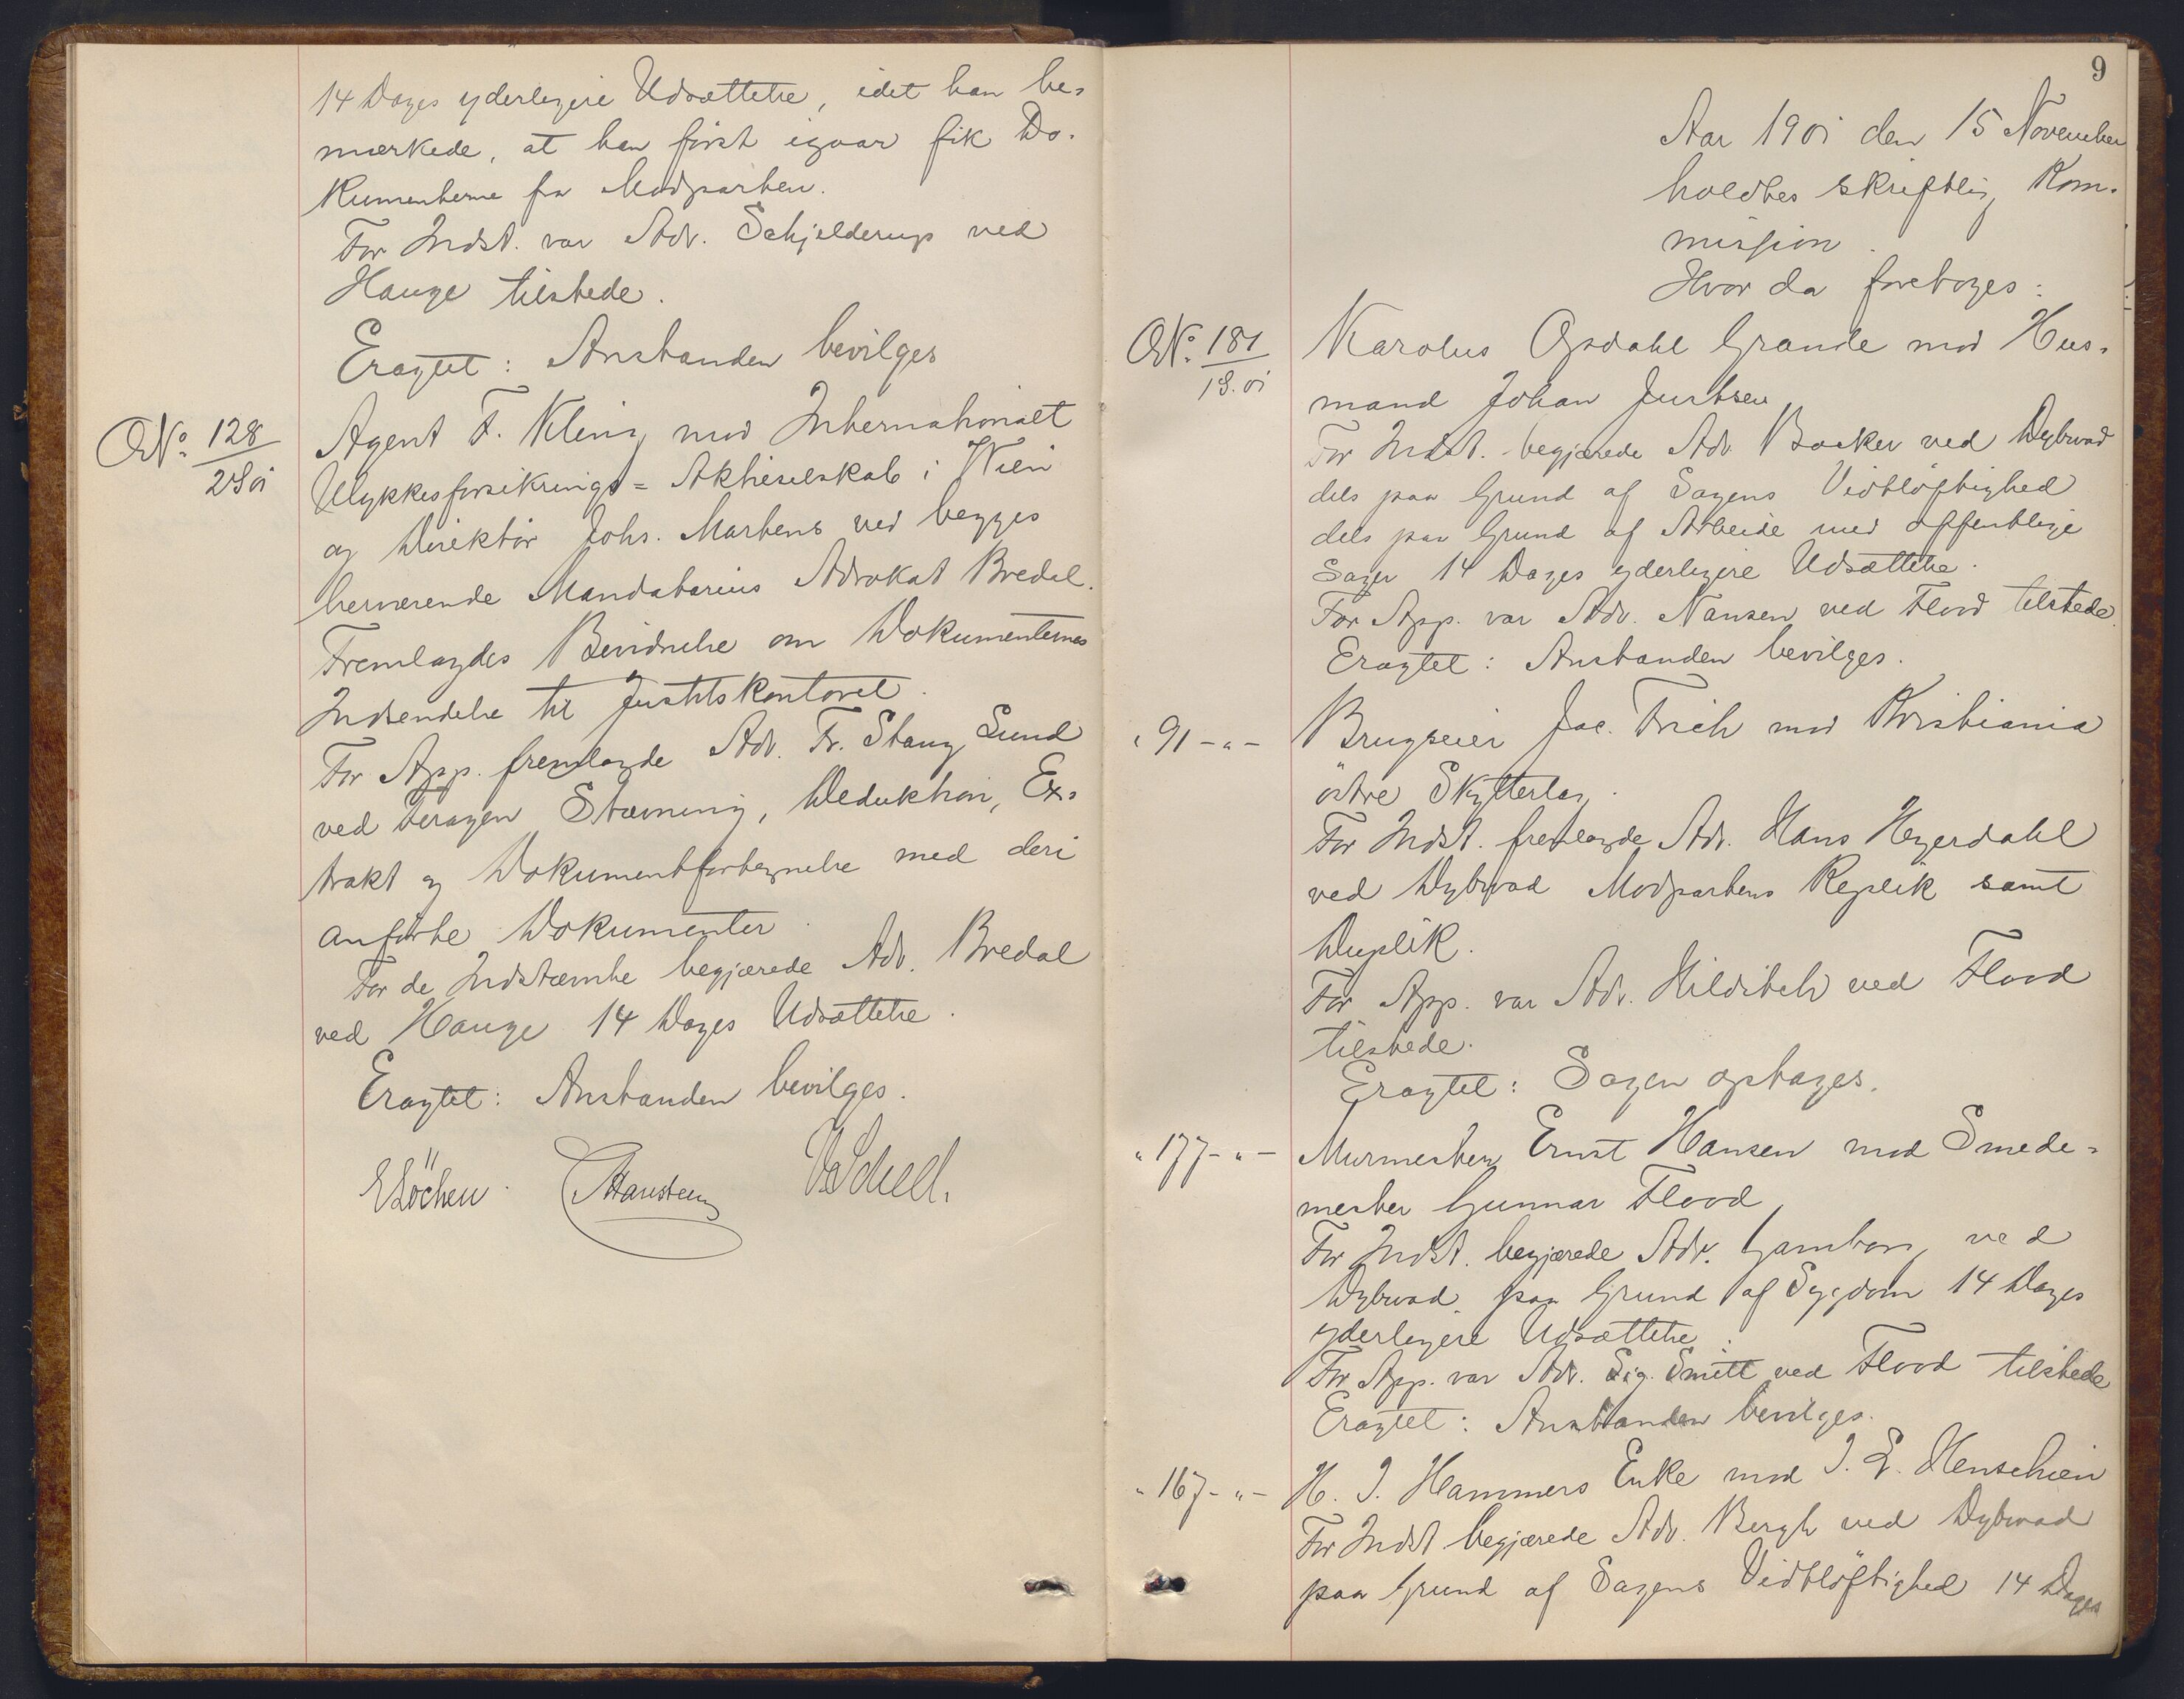 14 Dages yderligere Udsættelse, idet han be-
mærkede, at han først igaar fik Do-
kumenterne fra Modparten.
For Indst. var Adv. Schjelderup ved
Hauge tilstede.
Eragtet: Anstanden bevilges
No. 128
2S 01
Agent F. Kleng mod Internationalet
Ulykkesforsikrings=Aktieselskab i Wien
og Direktör Johs. Martens ved begges
herværende Mandatarius Advokat Bredal.
Fremlagdes Bevidnelse om Dokumenternes
Indsendelse til Justitskontoret.
For App. fremlagde Adv. Fr. Stang Lund
ved Stævning, Deduktion, Ex-
trakt og Dokumentfortegnelse med deri
anförte Dokumenter.
For de Indstævnte begjærede Adv. Bredal
ved Hauge 14 Dages Udsættelse.
Eragtet: Anstanden bevilges.
E Löchen. Hansteen Schell.
9
Aar 1901 den 15 November
holdtes skriftlig Kom-
mission.
Hvor da foretoges:
No. 181
1S. 01
Karolus Opdahl Grande mod Hus-
mand Johan Justsen
For Indst. begjærede Adv. Backer ved Dybwad
dels paa Grund af Sagens Vidtlöftighed
dels paa Grund af Arbeide med offentlige
Sager 14 Dages yderligere Udsættelse.
For App. var Adv. Nansen ved Flood tilstede.
Eragtet: Anstanden bevilges.
" 91 - " -
Brugseier Jac. Trich mod Kristiania
östre Skytterlag.
For Indst. fremlagde Adv. Hans Heyerdahl
ved Dybwad Modpartens Replik samt
Duplik.
For App. var Adv. Hilditch ved Flood
tilstede.
Eragtet: Sagen optages.
" 177 - " -
Murmester Ernst Hansen mod Smede-
mester Gunnar Flood
For Indst. begjærede Adv. Gamborg ved
Dybwad paa Grund af Sygdom 14 Dages
yderligere Udsættelse.
For App. var Adv. Sig. Smitt ved Flood tilstede
Eragtet: Anstanden bevilges.
" 167 - " -
H. J. Hammers Enke mod J. E. Henschien
For Indst. begjærede Adv. Bergh ved Dybwad
paa Grund af Sagens Vidtlöftighed 14 Dages